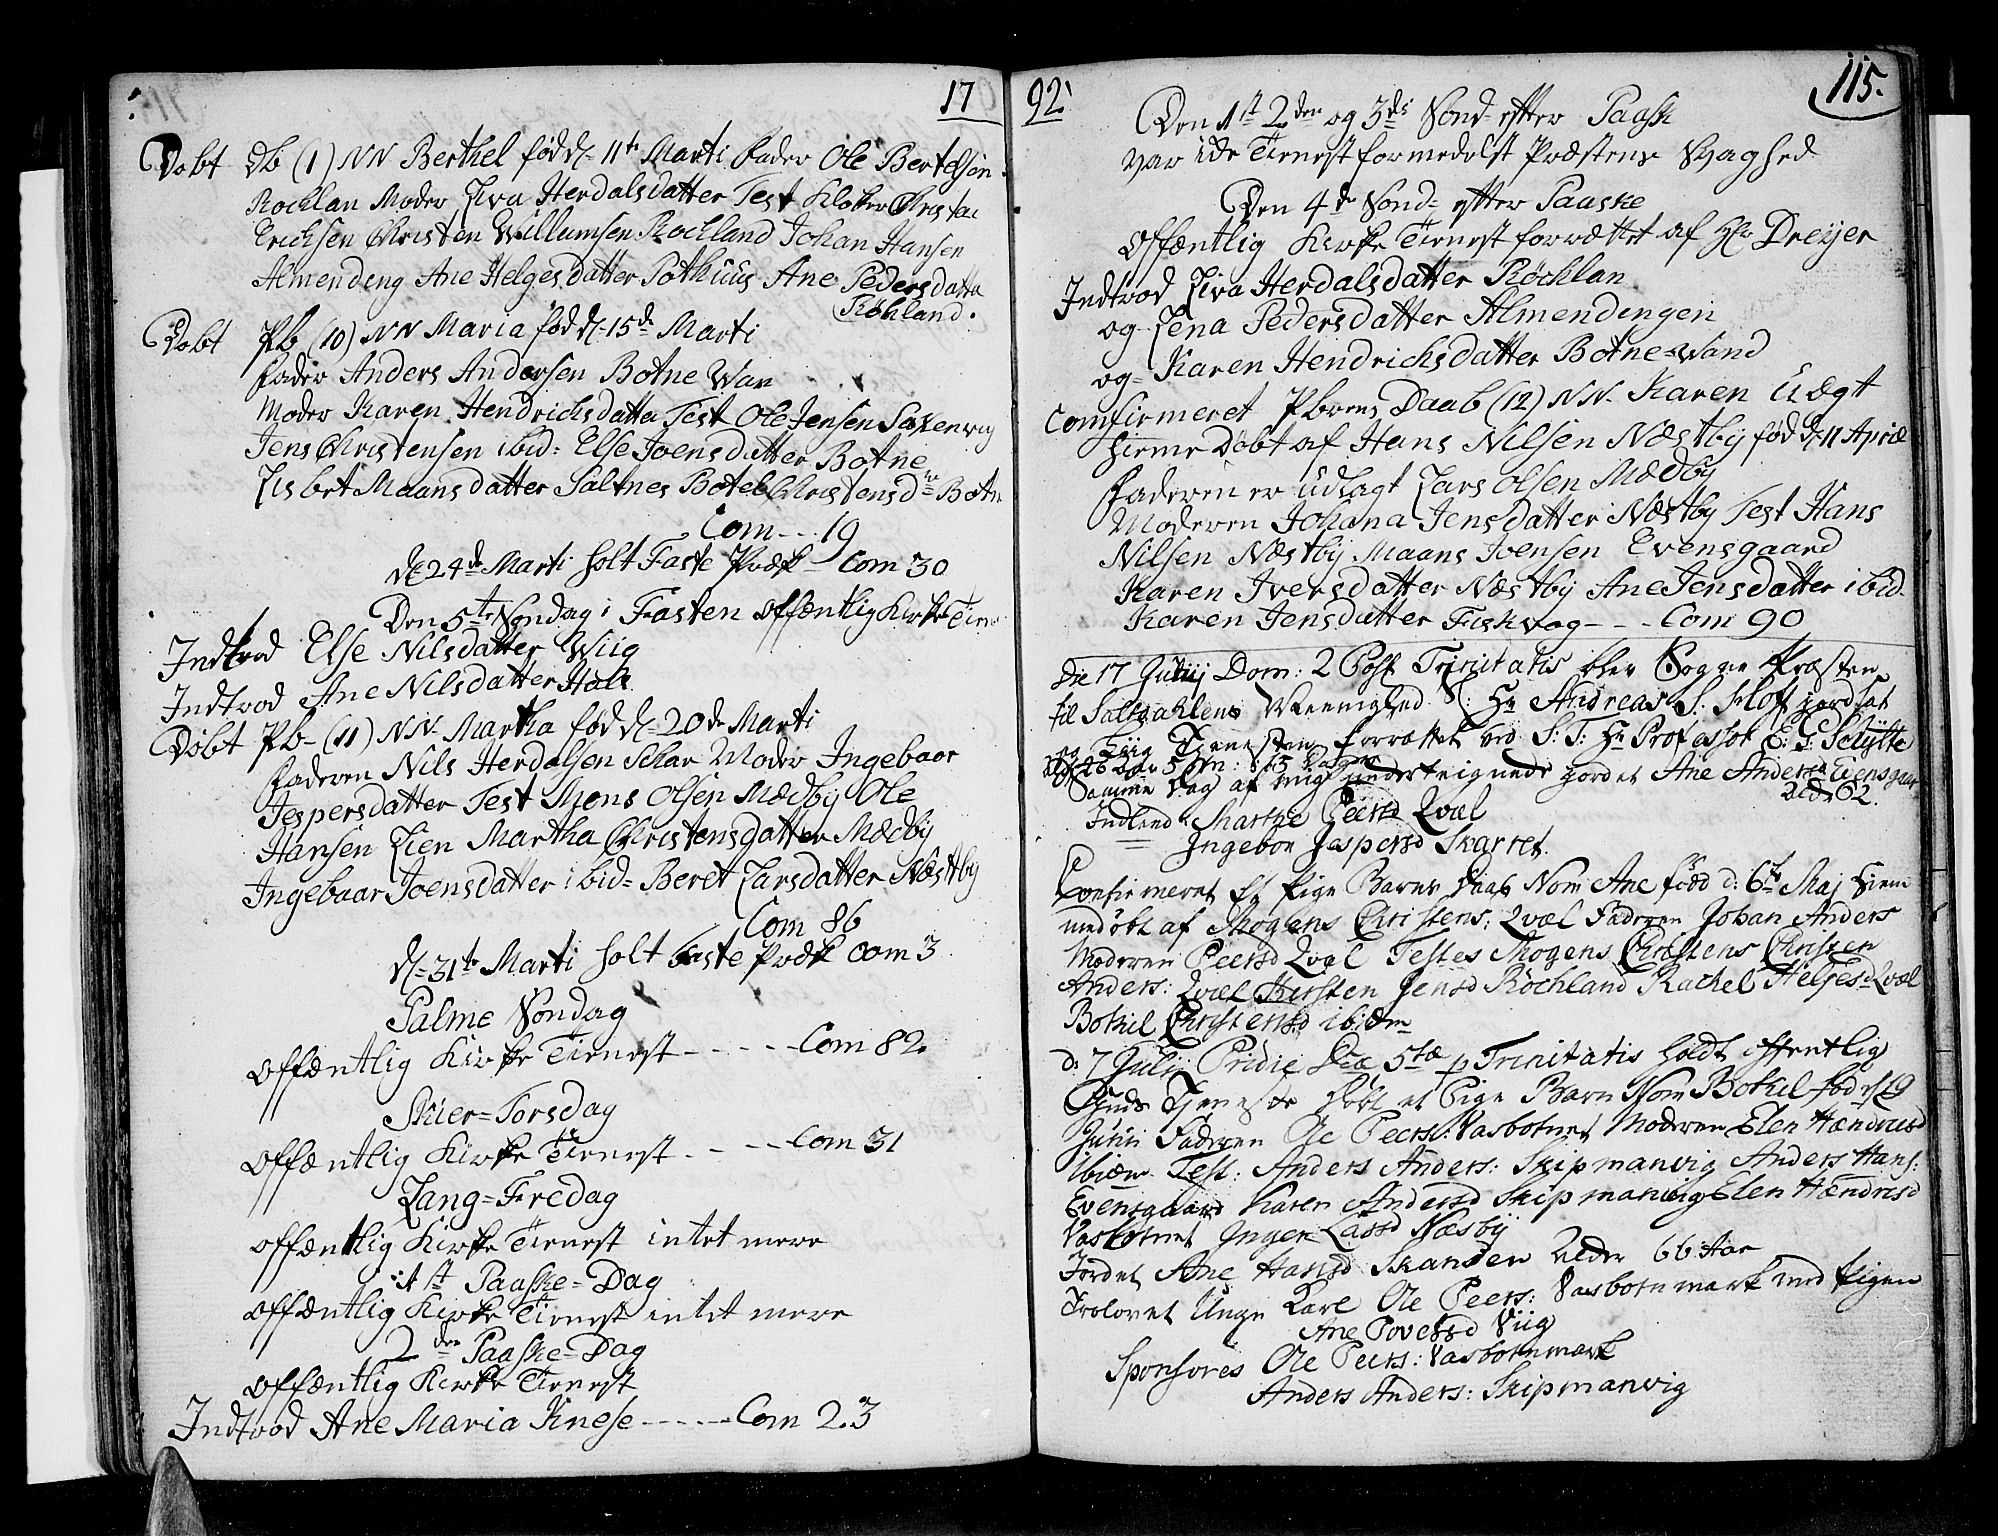 17
Døbt Db (1) NN Berthel fød d. 11te Marti Fader Ole Bertelsen
Rochlan Moder Liva Herdalsdatter Test Kloker Christan
Erichsen Christen Willumsen Rochland Johan Hansen
Almendeng Ane Helgesdatter Pothuus Ane Pedersdatta
Røhland.
Døbt Pb (10) NN Maria fød d. 15de Marti
Fader Anders Andersen Botne Wan
Moder Karen Hendrichsdatta Test Ole Jensen Saxenvig
Jens Christensen ibid: Else Joensdatter Botne
Lisbet Maansdatter Saltnes Botel Christensdr Botn
Com - - 19
d. 24de Marti holt Faste Præk - Com 30
Den 5te Søndag i Fasten offentlig Kirke Tien
Indtrod Else Nilsdatter Wiig
Indtrod Ane Nilsdatter Hals
Døbt Pb - (11) NN - Martha fød d. 20de Marti
Faderen Nils Herdalsen Schar Moder Ingebaar
Jespersdatter Test Mons Olsen Mædby Ole
Hansen Lien Martha Christensdatter Mædby
Ingebaar Joensdatter ibid= Beret Larsdatter Næstby
Com 86
d. 31te Marti holt Faste Præk Com 3
Palme Søndag
Offæntlig Kirke Tienest - - - - - Com 82
Skier=Torsdag
Offæntlig Kirke Tienest - - - Com 31
Lang=Fredag
Offæntlig Kirke Tienest intet mere
1st Paaske=Dag
Offæntlig Kirke Tienest intet mere
2den Paaske=Dag
Offæntlig Kirke Tienest
Indtrod Ane Maria Knese - - - - - Com 2.3
92
115.
Den 1st 2den og 3di Sønd efter Paask
var ide Tienest formedelst Præstens Svaghed
Den 4de Sønd= efter Paaske
Offæntlig Kirke Tienest forrættet af Hr Dreijer
Indtrod Liva Herdalsdatter Røchlan
og Lena Pedersdatter Almendingen
og - Karen Hendrichsdatter Botne=Wand
Comfirmeret Pbrens Daab (12) NN. Karen Uægt
hieme Døbt af Hans Nilsen Næstby fød d. 11 April
Faderen er udlagt Lars Olsen Mædby
Moderen Johana Jensdatter Næstby Test Hans
Nilsen Næstby Maans Joensen Evensgaard
Karen Iversdatter Næstby Ane Jensdatter ibid.
Karen Jensdatter Fiskvog - - - Com 90
Die 17 Junij Dom: 2 Post Trinitatis blev Sogne Præsten
til Saltdahlens Meenighed S: Hr Andreas S. Kloft jordsat
og Liig Tjenesten forrættet ved S: T: Hr Professor E: G: Schytte
Samme Dag af mig underteignede jordet Ane Anders Evensgaar
Ald 62.
Indled Marthe Peersd Qval
Ingebor Jespersd Skarret.
Confirmeret Et Pige Barns Daab Nom Ane fød d: 6te Maj hiem
medøbt af Mogens Christens: Qvæl Fadren Johan Anders
Moderen Peersd Qval Testes Mogens Christens Christen
Anders: Qvæl Kirsten Jensd Røchland Rachel Helgesd Qvæl
Bothel Christensd ibidem
d: 7 Julij Pridie Dca 5tæ p Trinitatis holdt offentlig
Guds Tjeneste Døbt et Pige Barn Nom Bothel fød d. 19
Junii Fadren Ole Peers: Vasbotnet Moderen Elen Hændricsd
ibidem Test: Anders Anders: Skipmanvig Anders Hans:
Evensgaard Karen Andersd Skipmanvig Elen Hændricsd
Vasbotnet Inger Lassd Næsby
Jordet Ane Hansd Skansen Alder 66 Aar
Trolovet Unge Karl Ole Peers: Vasbotnmark med Pigen
Ane Povelsd Viig
Sponsores Ole Peers: Vasbotnmark
Anders Anders: Skipmanvig